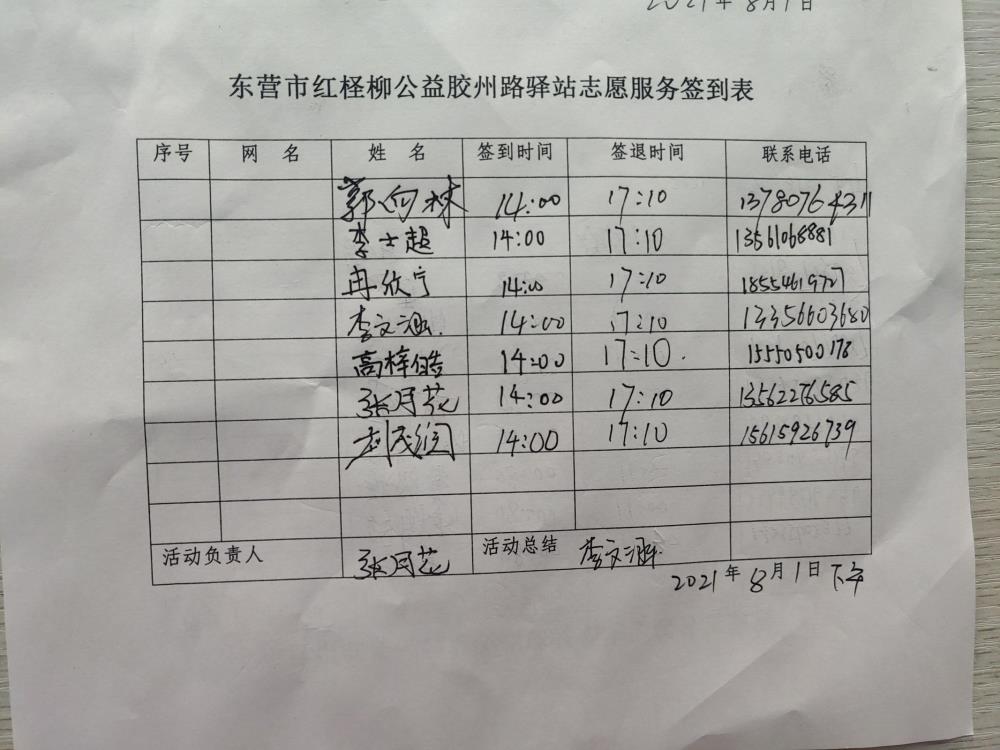 2021年8月1日
东营市红柽柳公益胶州路驿站志愿服务签到表
序号 网 名 姓 名 签到时间 签退时间 联系电话
郭向林 14:00 17:10 13780764311
李士超 14:00 17:10 13561068881
冉欣宁 14:00 17:10 18554619727
李文涵. 14:00 17:10 13356603680
高梓皓 14:00 17:10. 15550500178
张月花 14:00 17:10 13562276585
14:00 17:10 15615926739
活动负责人 张月花 活动总结 李文涵.
2021年8月1日下午